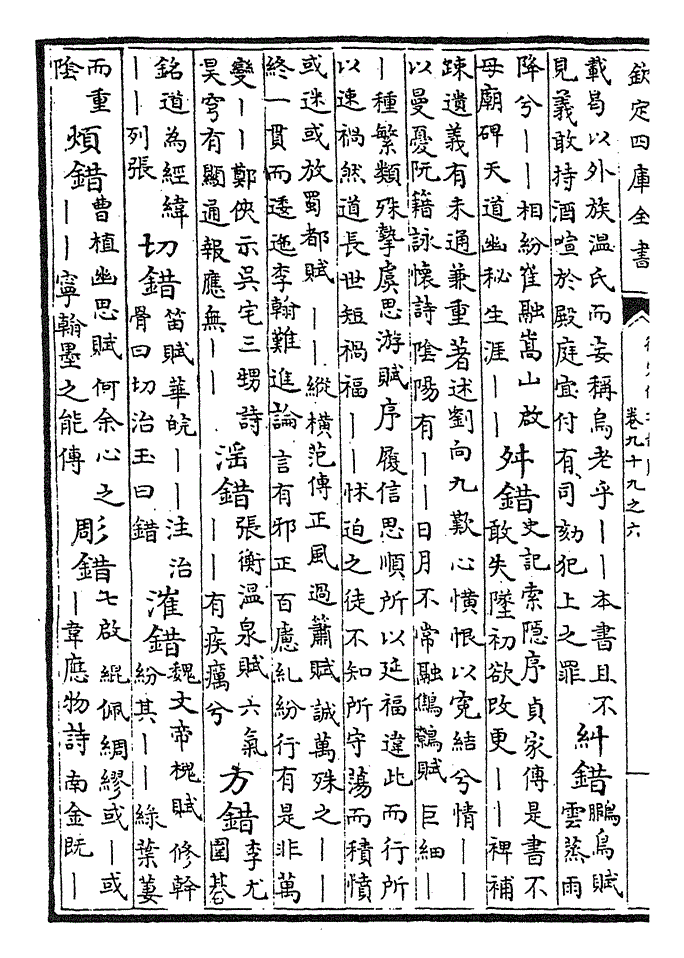 欽定四庫全書
卷九十九之六
載曷以外族温氏而妄稱烏老乎丨丨本書且不
見義敢持酒喧於殿庭宜付有司劾犯上之罪
糾錯
鵩鳥賦
雲蒸雨
降兮丨丨相紛崔融嵩山啟
母廟碑天道幽秘生涯丨丨
舛錯
史記索隱序貞家傳是書不
敢失墜初欲改更丨丨裨補
踈遺義有未通兼重著述劉向九歎心懭悢以寃結兮情丨丨
以曼憂阮籍詠懷詩陰陽有丨丨日月不常融鷦鷯賦巨細丨
丨種繁類殊摯虞思游賦序履信思順所以延福違此而行所
以速禍然道長世短禍福丨丨怵迫之徒不知所守蕩而積憤
或迷或放蜀都賦丨丨縱横范傳正風過簫賦誠萬殊之丨丨
終一貫而逶迤李翰難進論言有邪正百慮糺紛行有是非萬
變丨丨鄭俠示吳宅三甥詩
昊穹有顯通報應無丨丨
滛錯
張衡温泉賦六氣
丨丨有疾癘兮
方錯
李尤
圍碁
銘道為經緯
丨丨列張
切錯
笛賦華睆丨丨注治
骨曰切治玉曰錯
漼錯
魏文帝槐賦修幹
紛其丨丨綠葉萋
而重
陰
煩錯
曹植幽思賦何余心之
丨丨寧翰墨之能傳
彫錯
七啟緄佩綢繆或丨或
丨韋應物詩南金既丨